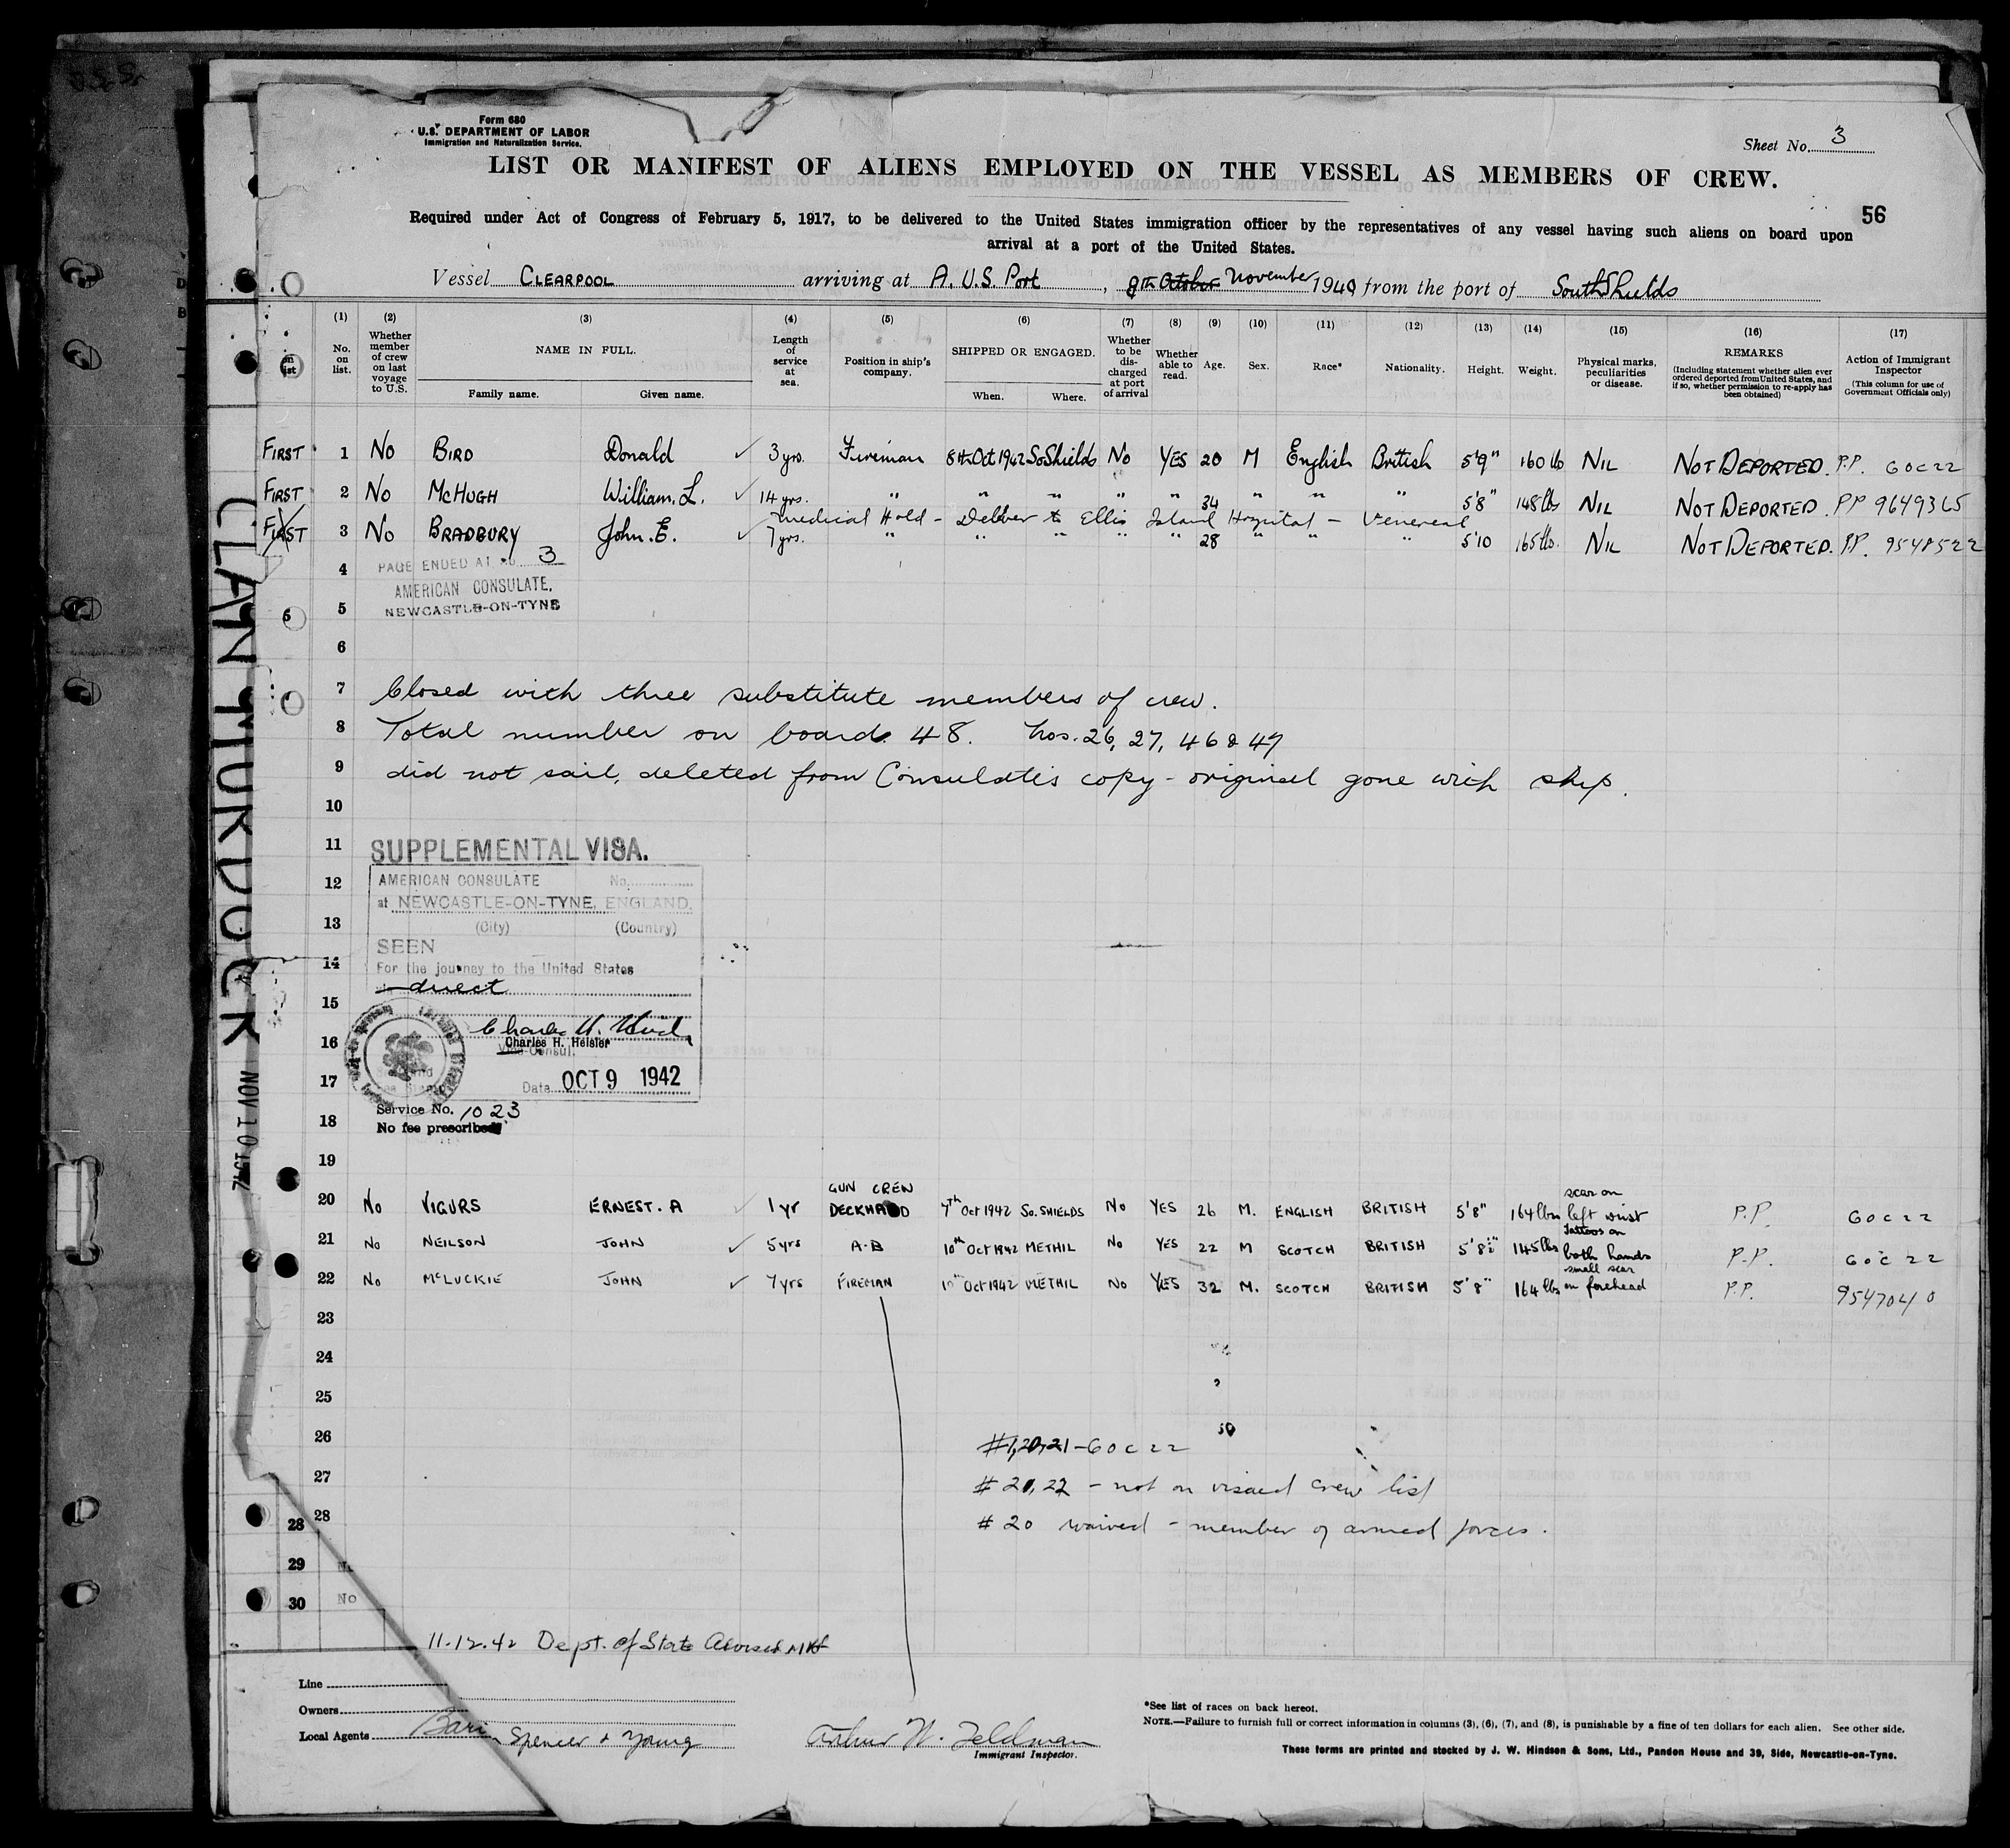 Form 680
U.S. DEPARTMENT OF LABOR
Immigration and Naturalization Service.
Sheet No. 3
LIST OR MANIFEST OF ALIENS EMPLOYED ON THE VESSEL AS MEMBERS OF CREW.
56
Required under Act of Congress of February 5, 1917, to be delivered to the United States immigration officer by the representatives of any vessel having such aliens on board upon
arrival at a port of the United States.
Vessel CLEARPOOL arriving at A. U.S. Port, 8th October November 1940 from the port of South Shields
(1) No. on list.
(2) Whether member of crew on last voyage to U.S.
(3) NAME IN FULL. Family name. Given name.
(4) Length of service at sea.
(5) Position in ship's company.
(6) SHIPPED OR ENGAGED. When. Where.
(7) Whether to be discharged at port of arrival
(8) Whether able to read.
(9) Age.
(10) Sex.
(11) Race*
(12) Nationality.
(13) Height.
(14) Weight.
(15) Physical marks, peculiarities or disease.
(16) REMARKS (Including statement whether alien ever ordered deported from United States, and if so, whether permission to re-apply has been obtained)
(17) Action of Immigrant Inspector (This column for use of Government Officials only)
FIRST 1 No BIRD Donald ✓ 3 yrs. Fireman 8th Oct 1942 So Shields No YES 20 M English British 5'9" 160 lb NIL NOT DEPORTED. P.P. GOC22
FIRST 2 No MCHUGH William. L. ✓ 14 yrs. " " " " " 34 " " " 5'8" 148 lbs NIL NOT DEPORTED. PP 9649365
medical Hold - Deliver to Ellis Island Hospital - Venereal
FIRST 3 No BRADBURY John. E. ✓ 7 yrs. " " " " " 28 " " " 5'10 165 lb. NIL NOT DEPORTED. P.P. 9548522
4 PAGE ENDED AT No 3
AMERICAN CONSULATE,
5 NEWCASTLE-ON-TYNE
6
7 Closed with three substitute members of crew.
8 Total number on board 48. Nos. 26, 27, 46 & 47
9 did not sail, deleted from Consulate's copy - original gone with ship.
10
11 SUPPLEMENTAL VISA.
12 AMERICAN CONSULATE No.
at NEWCASTLE-ON-TYNE, ENGLAND.
13 (City) (Country)
SEEN
14 For the journey to the United States
direct
15
16 Charles H. Heisler
Vice Consul.
17 Date OCT 9 1942
Service No. 1023
18 No fee prescribed
19
20 No VIGURS ERNEST. A ✓ 1 yr GUN CREW DECKHAND 7th Oct 1942 So. SHIELDS No YES 26 M. ENGLISH BRITISH 5'8" 164 lbs scar on left wrist P.P. GOC22
21 No NEILSON JOHN ✓ 5 yrs A.B 10th Oct 1942 METHIL No YES 22 M SCOTCH BRITISH 5'8½" 145 lbs Tattoos on both hands P.P. GOC22
22 No McLUCKIE JOHN ✓ 7 yrs FIREMAN 10th Oct 1942 METHIL No YES 32 M. SCOTCH BRITISH 5'8" 164 lbs small scar on forehead P.P. 9547040
23
24
25
26 #1, 20, 21 - GOC22
27 # 21, 22 - not on visaed crew list
28 28 # 20 waived - member of armed forces.
29
30 No
11.12.42 Dept. of State Advised
CLAN MURDOCK NOV 10 1942
Line
Owners
Local Agents Barr Spencer & Young
Arthur W. Feldman
Immigrant Inspector.
*See list of races on back hereof.
NOTE.—Failure to furnish full or correct information in columns (3), (6), (7), and (8), is punishable by a fine of ten dollars for each alien. See other side.
These forms are printed and stocked by J. W. Hindson & Sons, Ltd., Pandon House and 39, Side, Newcastle-on-Tyne.